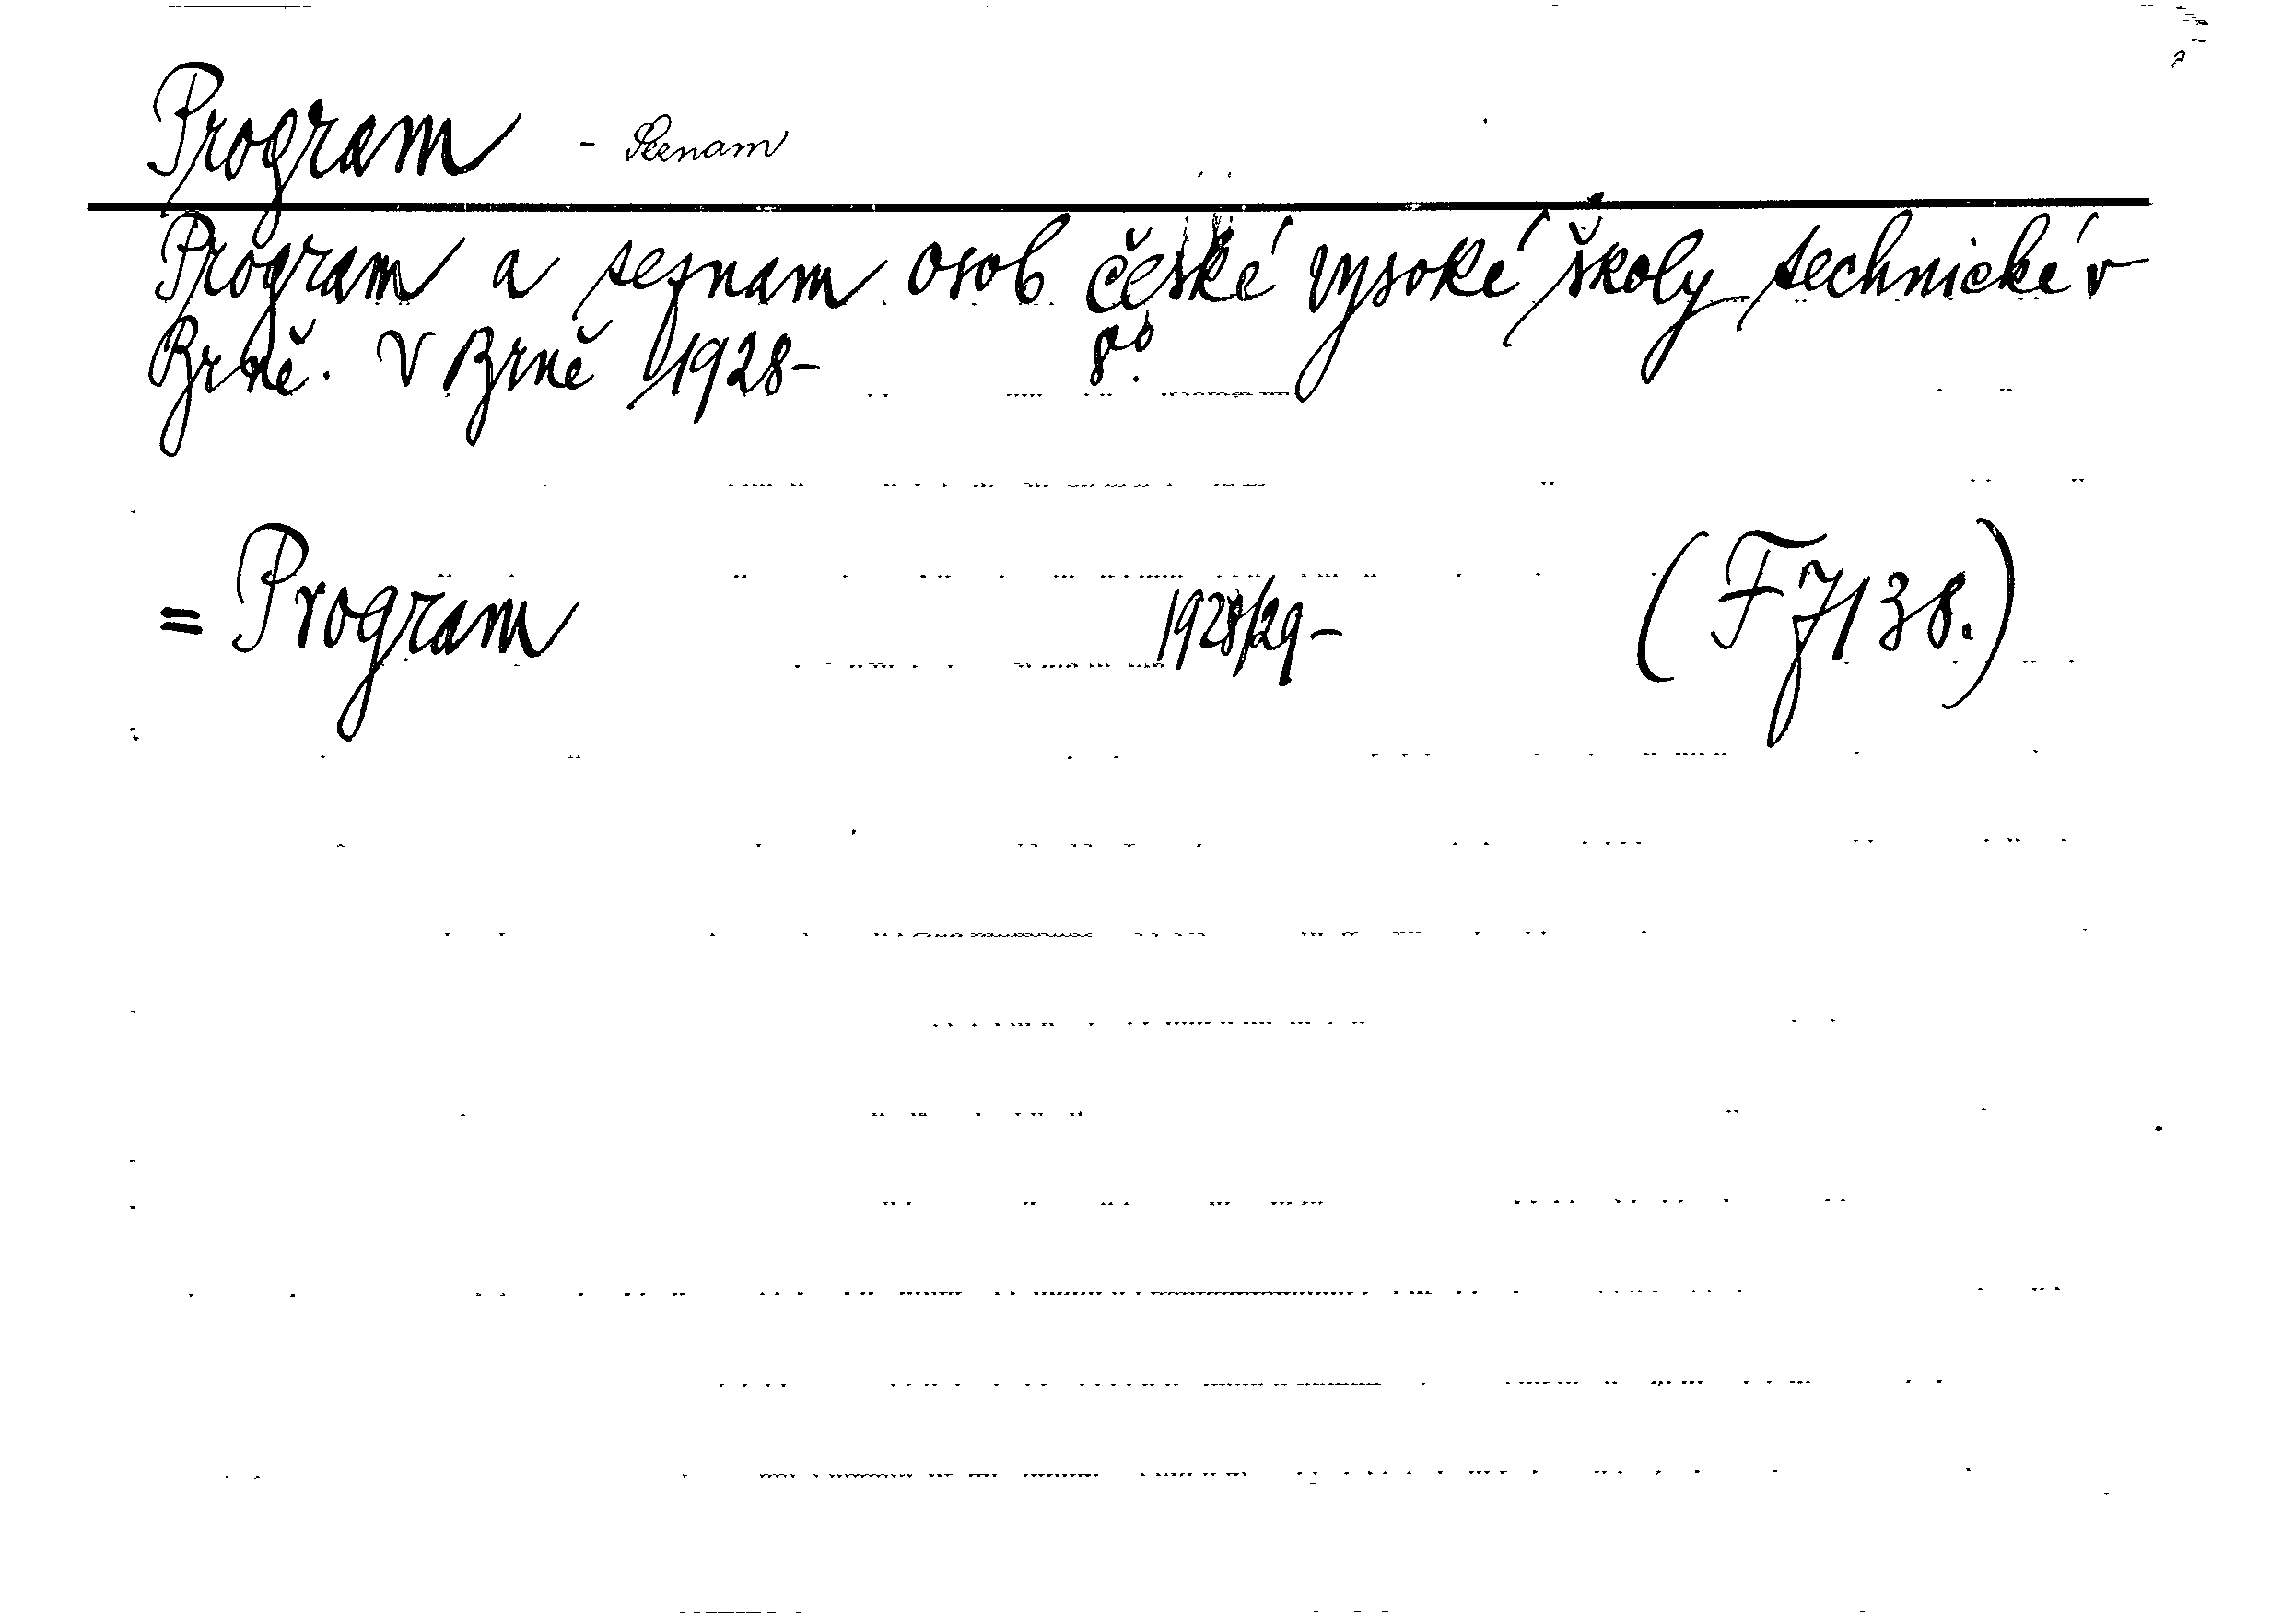 Program - Seznam
Program a seznam osob české vysoké školy technické v
Brně. V Brně 1928- 8°.
= Program 1928/29- (F 7138.)